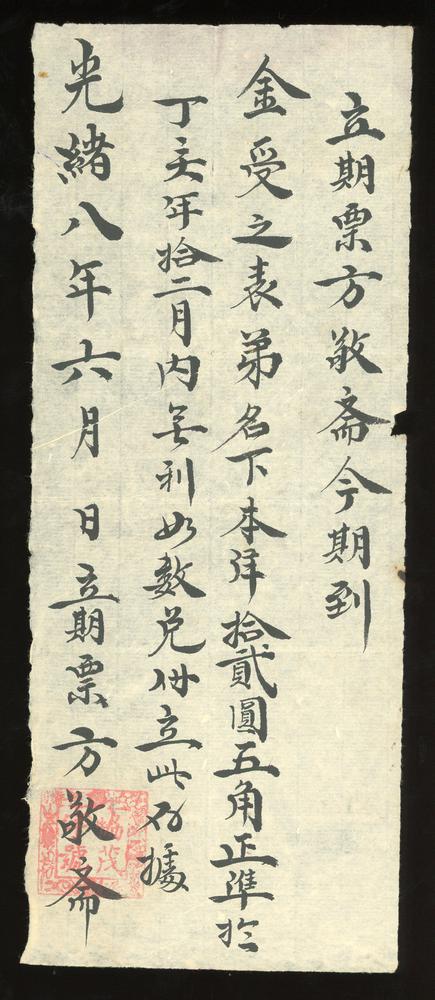 立期票方敬斋今期到
金受之表弟名下本洋拾貳圓五角正準於
丁亥年拾二月内無利如数兑付立此为據
光緒八年六月 日立期票方敬斋